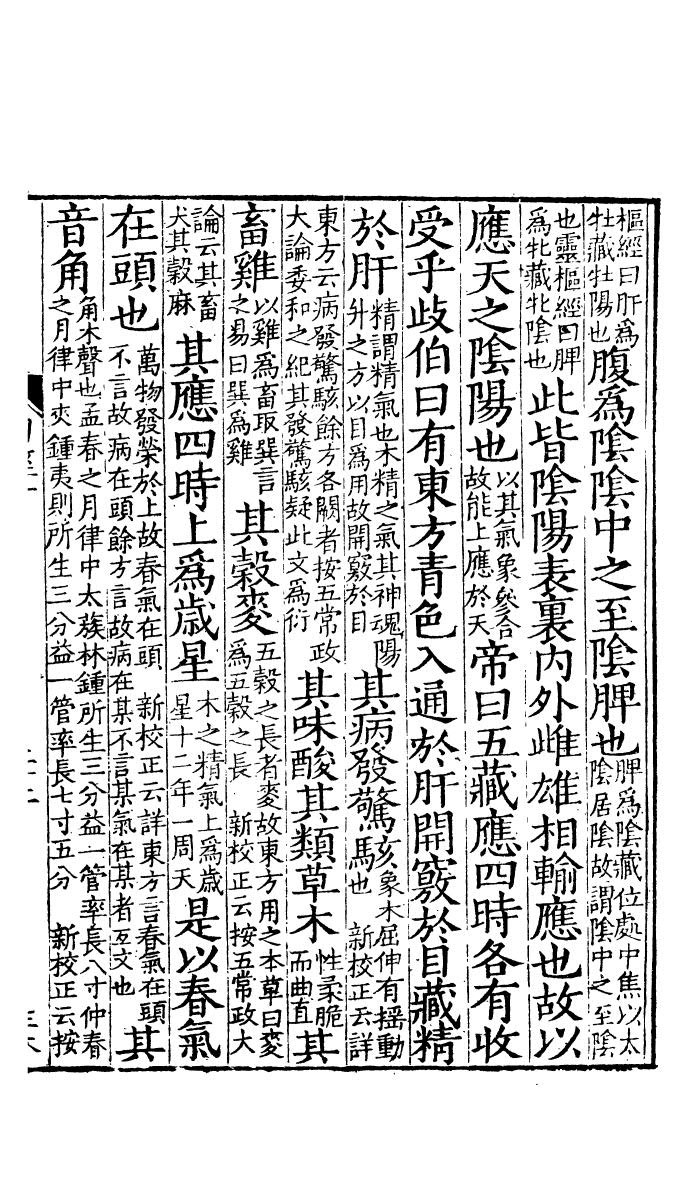 樞經曰肝爲牡藏牡陽也腹爲陰陰中之至陰脾也脾爲陰藏位處中焦以太陰居陰故謂陰中之至陰
也靈樞經曰脾爲牝藏牝陰也此皆陰陽表裏内外雌雄相輸應也故以
應天之陰陽也以其氣象參合故能上應於天帝曰五藏應四時各有收
受乎歧伯曰有東方青色入通於肝開竅於目藏精
於肝精謂精氣也木精之氣其神魂陽升之方以目爲用故開竅於目其病發驚駭象木屈伸有摇動也 新校正云詳
東方云病發驚駭餘方各闕者按五常政大論委和之紀其發驚駭疑此文爲衍其味酸其類草木性柔脆而曲直其
畜雞以雞爲畜取巽言之易曰巽爲雞其穀麥五穀之長者麥故東方用之本草曰麥爲五穀之長 新校正云按五常政大
論云其畜犬其穀麻其應四時上爲歲星木之精氣上爲歲星十二年一周天是以春氣
在頭也萬物發榮於上故春氣在頭 新校正云詳東方言春氣在頭不言故病在頭餘方言故病在某不言某氣在某者互文也其
音角角木聲也孟春之月律中太蔟林鍾所生三分益一管率長八寸仲春之月律中夾鍾夷則所生三分益一管率長七寸五分 新校正云按